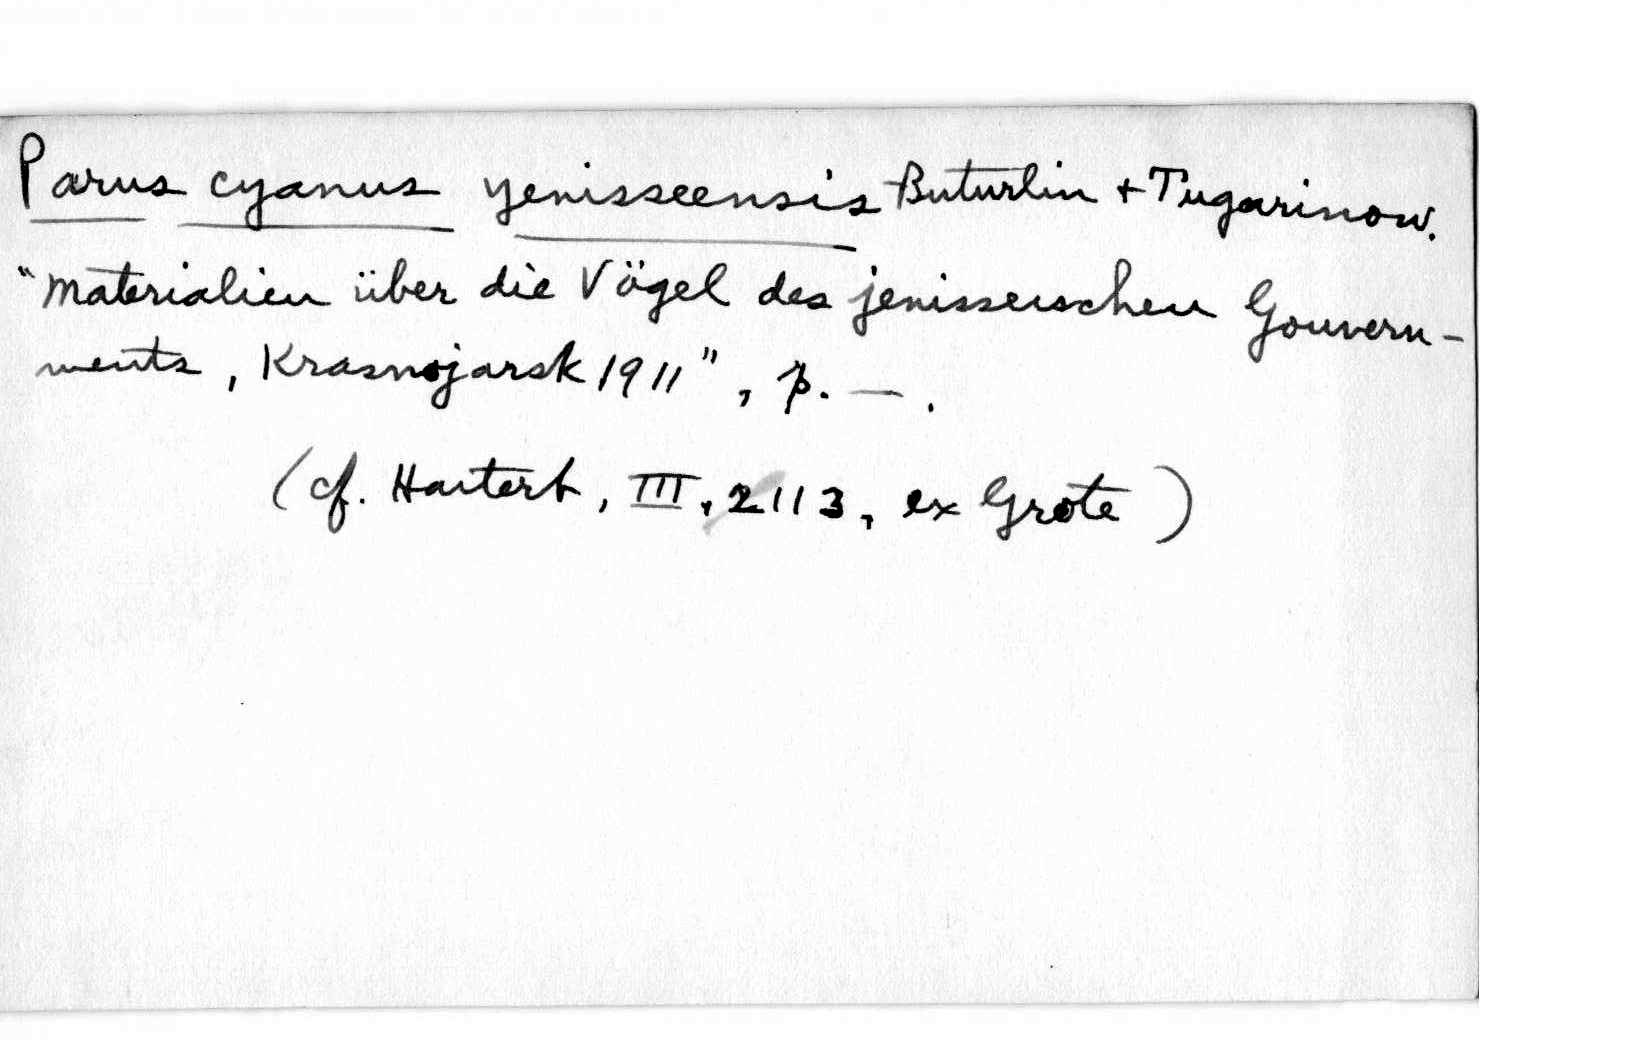 Parus cyanus yenisseensis Buturlin + Tugarinow.
"Materialien über die Vögel des jenisseischen Gouvern-
ments, Krasnojarsk 1911", p. — .
(cf. Hartert, III, 2113, ex Grote)